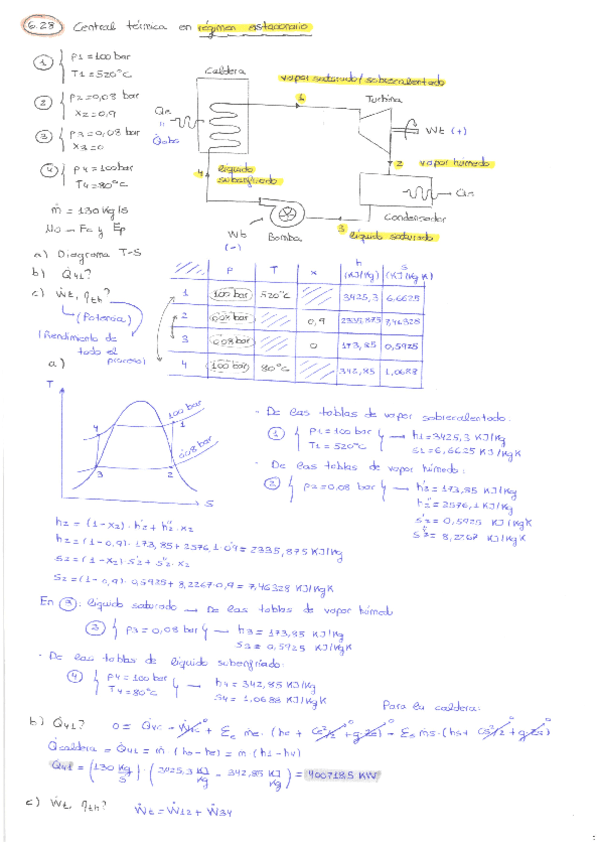 6.28 Central térmica en régimen estacionario
1 { P1 = 100 bar
T1 = 520°C
2 { P2 = 0,08 bar
x2 = 0,9
3 { P3 = 0,08 bar
x3 = 0
4 { P4 = 100 bar
T4 = 80°C
ṁ = 130 Kg/s
No → Ec y Ep
Caldera
vapor saturado/sobrecalentado
1
Turbina
Wt (+)
2 vapor húmedo
4
líquido subenfriado
Condensador
3 líquido saturado
Wb
(-)
Bomba
a) Diagrama T-S
b) Q̇41?
c) Ẇt, ηth?
(Potencia)
(Rendimiento de todo el proceso)
P T x h (KJ/Kg) s (KJ/Kg K)
1 100 bar 520°C 3425,3 6,6625
2 0,08 bar 0,9 2335,875 7,46328
3 0,08 bar 0 173,85 0,5925
4 100 bar 80°C 342,85 1,0688
a)
T
100 bar
0,08 bar
4 1
3 2
S
- De las tablas de vapor sobrecalentado:
1 { P1 = 100 bar } → h1 = 3425,3 KJ/Kg
T1 = 520°C s1 = 6,6625 KJ/Kg K
- De las tablas de vapor húmedo:
2 { P2 = 0,08 bar } → h2' = 173,85 KJ/Kg
h2'' = 2576,1 KJ/Kg
s2' = 0,5925 KJ/Kg K
s2'' = 8,2267 KJ/Kg K
h2 = (1-x2) · h2' + h2'' · x2
h2 = (1-0,9) · 173,85 + 2576,1 · 0,9 = 2335,875 KJ/Kg
s2 = (1-x2) · s2' + s2'' · x2
s2 = (1-0,9) · 0,5925 + 8,2267 · 0,9 = 7,46328 KJ/Kg K
En 3: líquido saturado → De las tablas de vapor húmedo
3 { P3 = 0,08 bar } → h3 = 173,85 KJ/Kg
s3 = 0,5925 KJ/Kg K
- De las tablas de líquido subenfriado:
4 { P4 = 100 bar } → h4 = 342,85 KJ/Kg
T4 = 80°C s4 = 1,0688 KJ/Kg K
Para la caldera:
b) Q̇41? 0 = Q̇vc - Ẇvc + Σe ṁe · (he + Ce²/2 + g·ze) - Σs ṁs · (hs + Cs²/2 + g·zs)
Q̇caldera = Q̇41 = ṁ (hs - he) = ṁ (h1 - h4)
Q̇41 = (130 Kg/s) · (3425,3 KJ/Kg - 342,85 KJ/Kg) = 400718,5 KW
c) Ẇt, ηth? Ẇt = Ẇ12 + Ẇ34